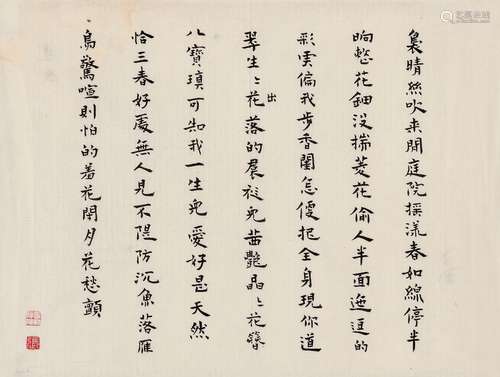 裊晴絲吹来閒庭院搖漾春如線停半
晌整花鈿没揣菱花偷人半面迤逗的
彩雲偏我步香閨怎便把全身現你道
出
翠生〻花落的裙衫兒茜艷晶〻花簪
八寶瑱可知我一生兒愛好是天然
恰三春好處無人見不隄防沉魚落雁
鳥驚喧則怕的羞花閉月花愁顫